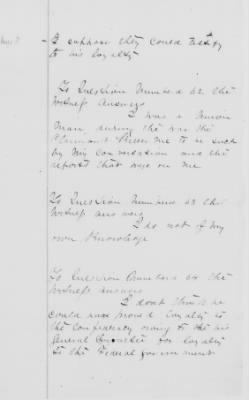 I suppose they could testify
to his loyalty
To Question Number 62 the
Witness answers
I was a Union
Man, during the war the
Claimant knew me to be such
by my conversation and the
reports that were on me
To Question Number 63 the
Witness answers
I do not of my
own Knowledge
To Question Number 64 the
Witness answers
I dont think he
could have proved loyalty to
the Confederacy owing to the his
General Character for loyalty
to the Federal government